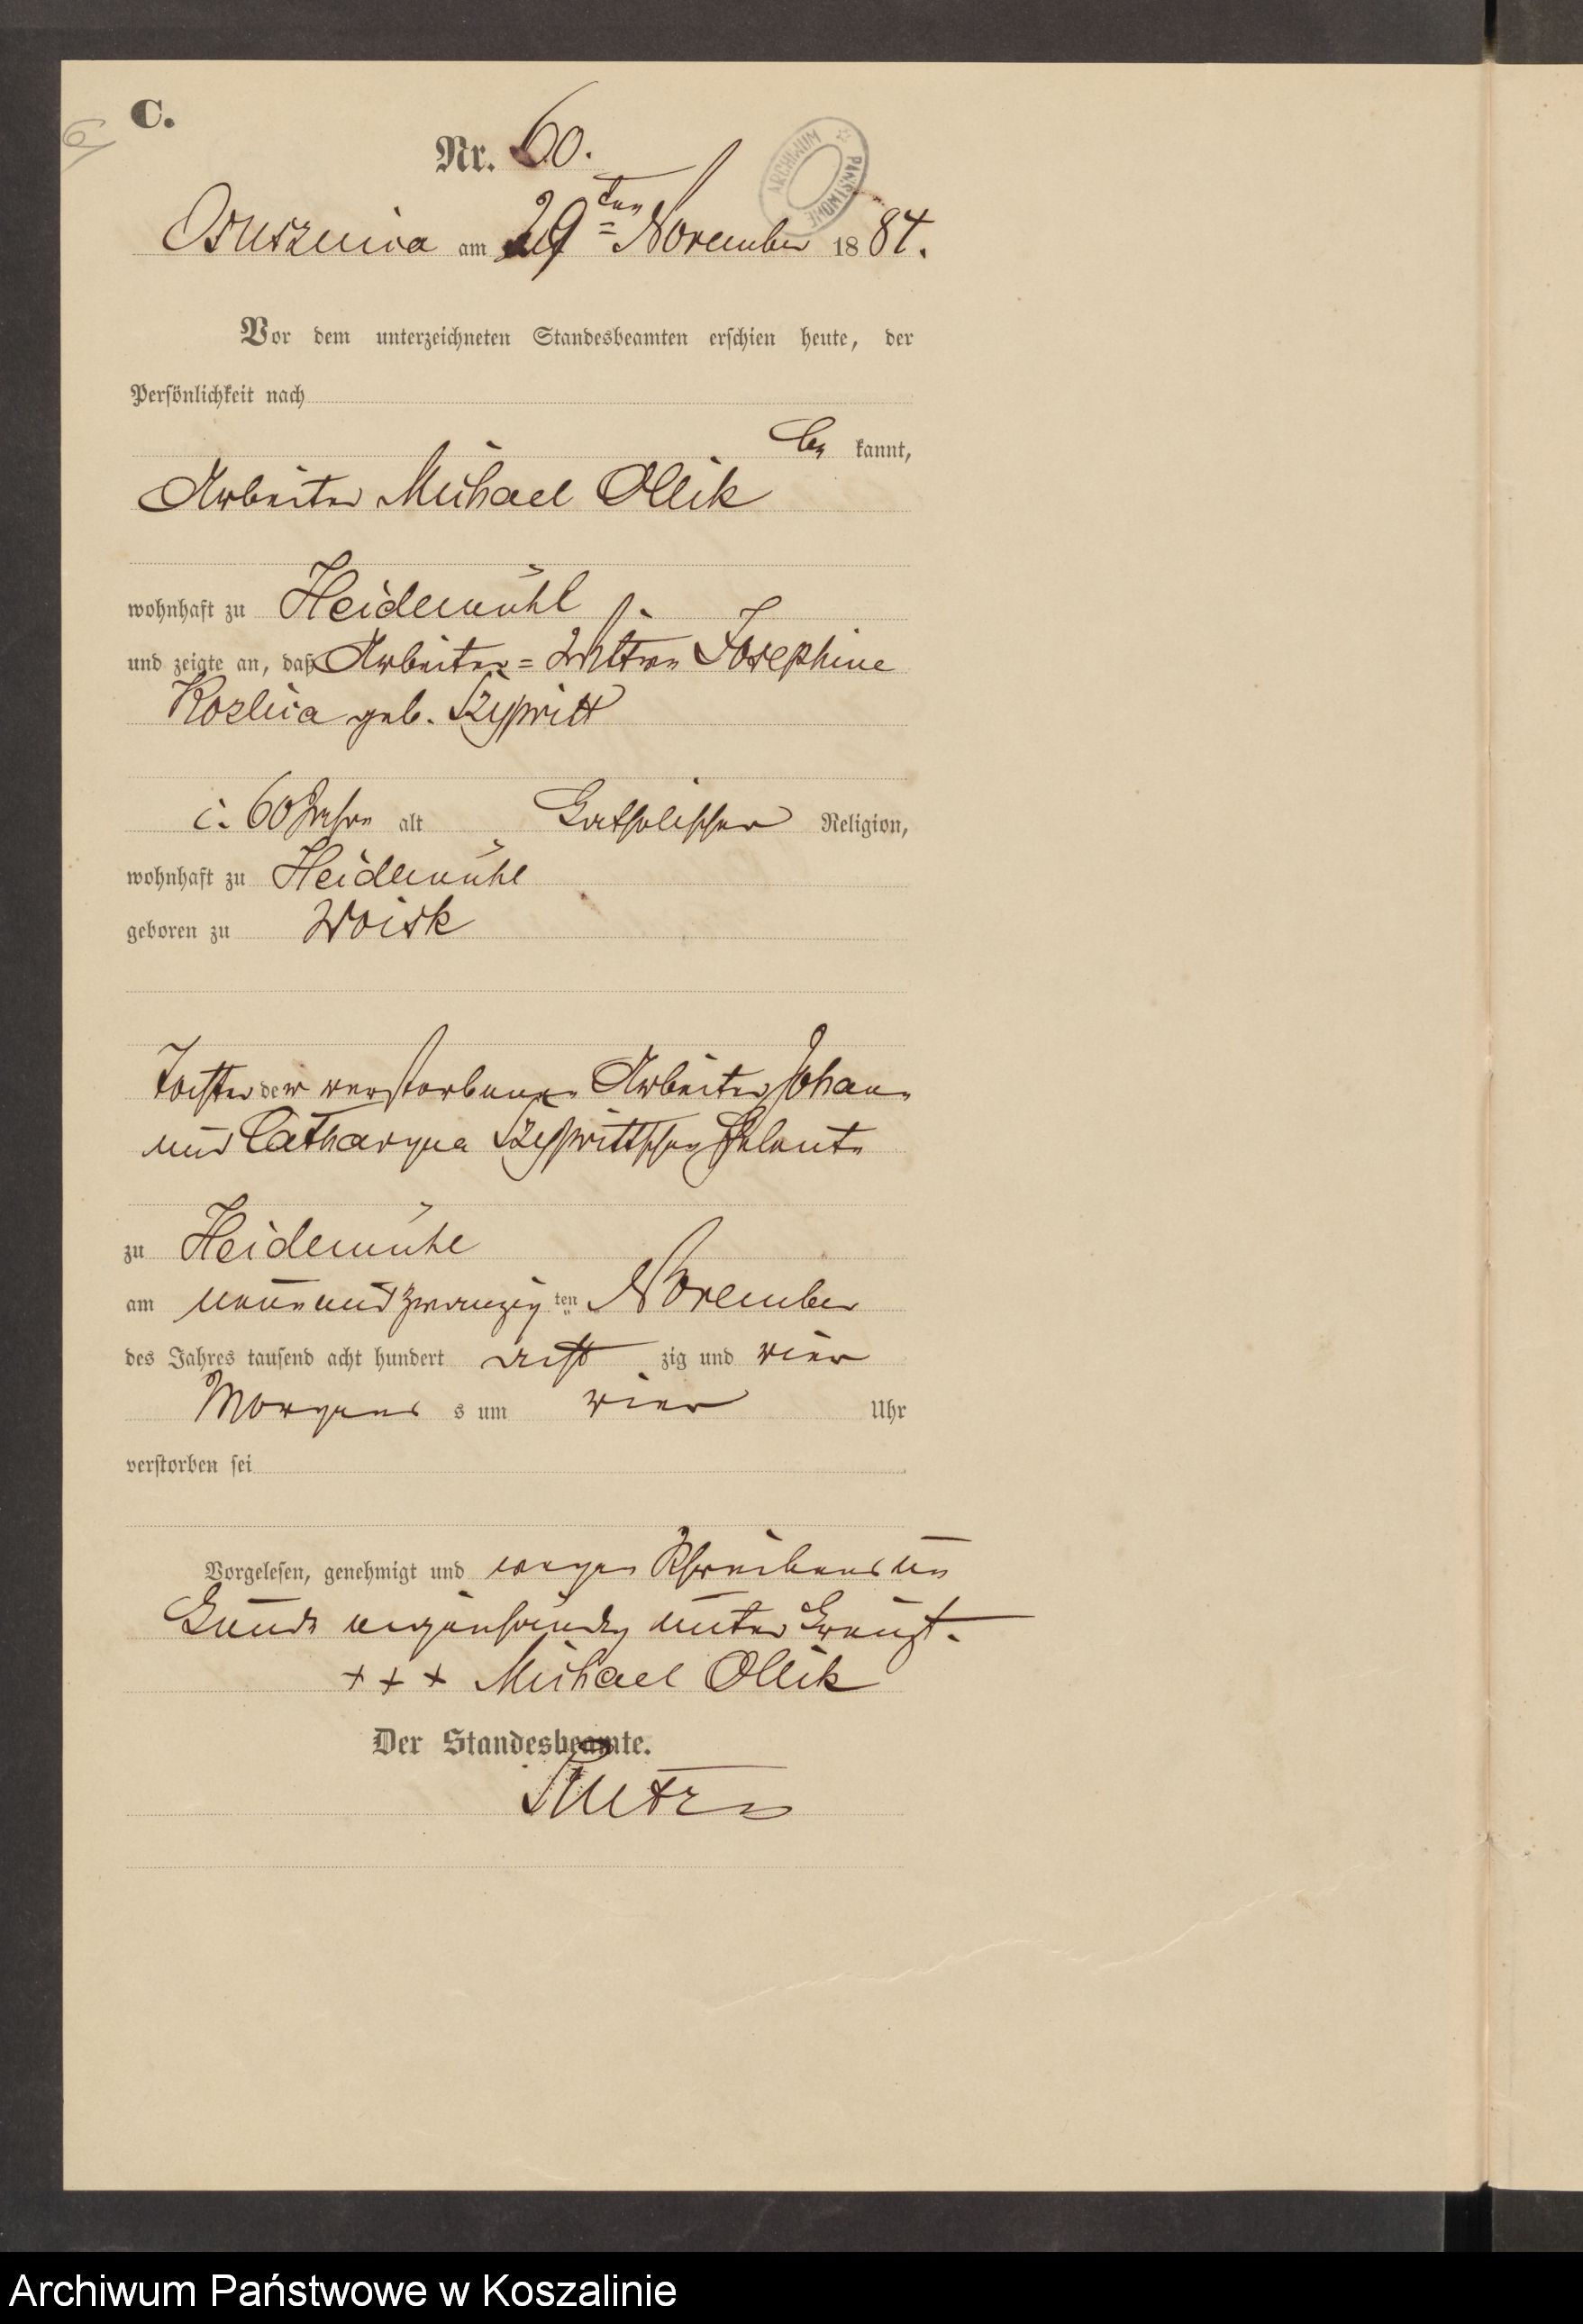 C.
Nr. 60.
ARCHIWUM PAŃSTWOWE
Osuszniza am 29ten November 1884.
Vor dem unterzeichneten Standesbeamten erschien heute, der
Persönlichkeit nach
be kannt,
Arbeiter Michael Ollik
wohnhaft zu Heidemühl
und zeigte an, daß Arbeiter= Wittwe Josephine
geb.
c. 60 Jahre alt Katholischer Religion,
wohnhaft zu Heidemühl
geboren zu Woisk
Tochter der verstorbenen Arbeiter Johann
und Catharyna Eheleute
zu Heidemühl
am neun und zwanzig ten November
des Jahres tausend acht hundert acht zig und vier
Morgens s um vier Uhr
verstorben sei
Vorgelesen, genehmigt und wegen Schreibens un
Kunde eigenhändig unter Kreuzt.
+ + + Michael Ollik
Der Standesbeamte.
Archiwum Państwowe w Koszalinie